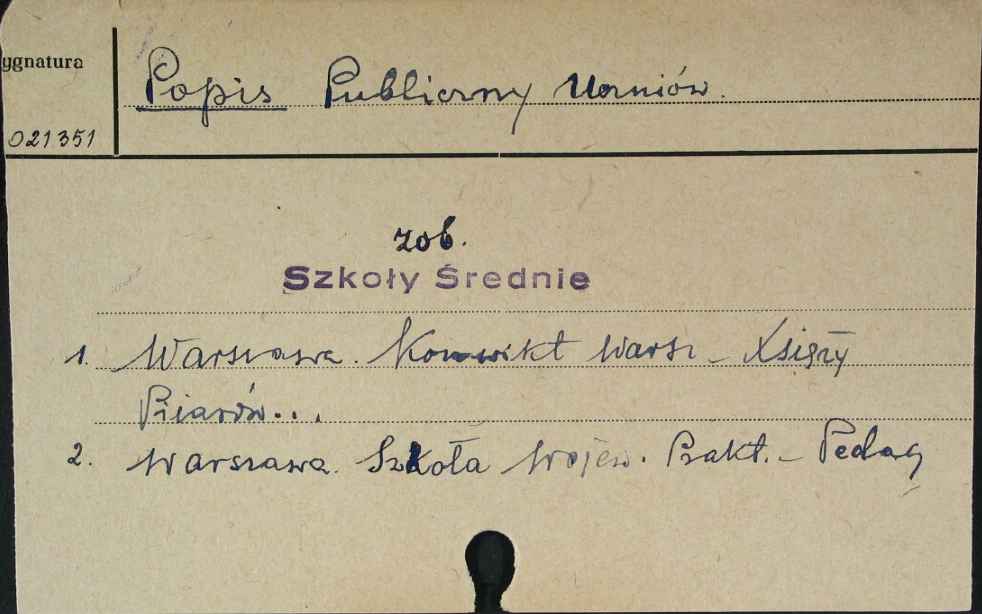 ygnatura
Popis Publiczny Uczniów.
021351
zob.
Szkoły Średnie
1. Warszawa. Konwikt Warsz - Księży
Pijarów...
2. Warszawa. Szkoła Wojew. Prakt. - Pedag